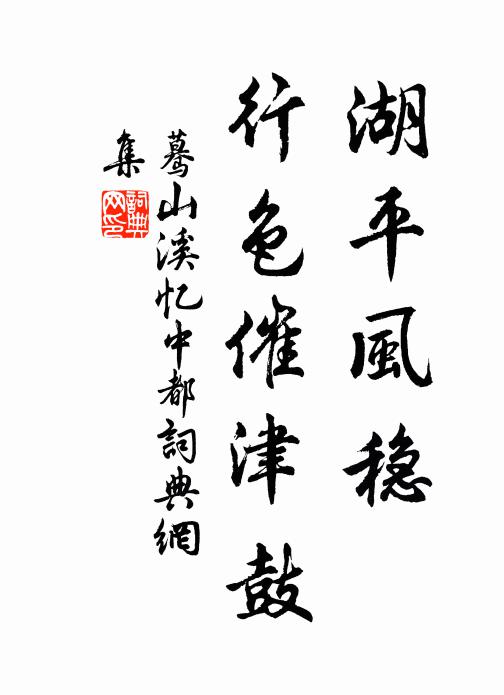 湖平風穩
行色催津鼓
蓦山溪忆中都詞典網
集
詞典网印